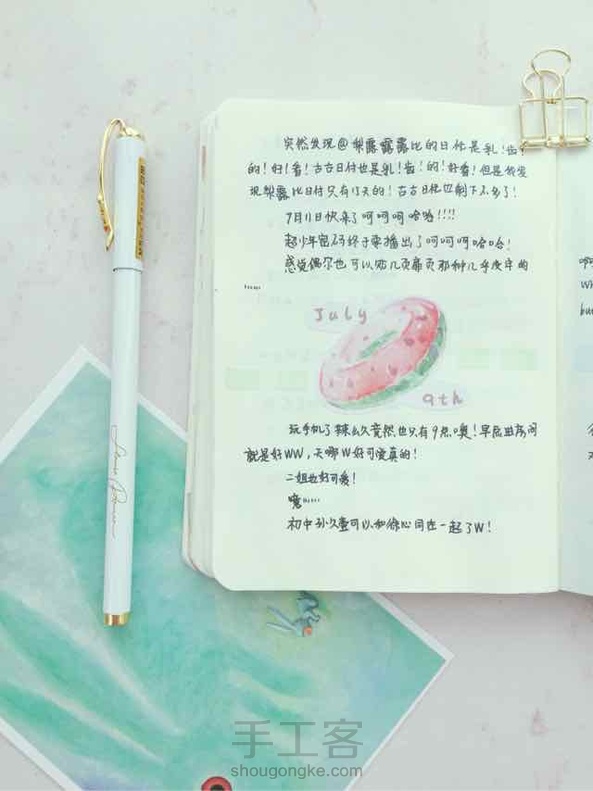 突然发现@梨露露露比的日付是乳!齿!
的!好!看!古古日付也是乳!齿!的!好看!但是我发
现梨露比日付只有17天的!古古日付也剩下不多了!
7月11日快来了呵呵呵哈哈!!!!
超少年密码终于要播出了呵呵呵哈哈!
感觉偶尔也可以贴几页痛页那种几乎废字的
July
9th
玩手机了辣么久竟然也只有9点噢!早起出房间
就是好WW,天哪W好可爱真的!
二姐也好可爱!
嗷
初中
可以和徐心同在一起了W!
手工客
shougongke.com